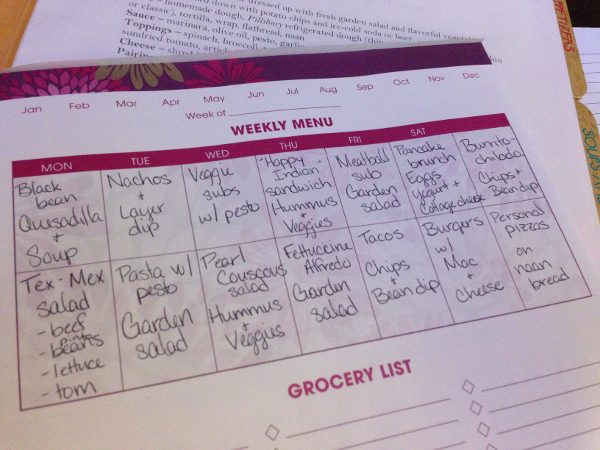 dressed up with fresh garden salad and flavorful
down with potato chips and ice-cold soda or beer
homemade dough, Pillsbury refrigerated dough (thin
or classic), tortilla, wrap, flatbread, naan
Sauce – marinara, olive oil, pesto,
Toppings – spinach, broccoli,
sundried tomato,
Cheese –
Jan Feb Mar Apr May Jun Jul Aug Sep Oct Nov Dec
Week of
WEEKLY MENU
MON TUE WED THU FRI SAT
Black
bean
Quesadilla
+
Soup
Nachos
+
Layer
dip
Veggie
subs
w/ pesto
"Happy
Indian"
sandwich
Hummus
+
Veggies
Meatball
sub
Garden
salad
Pancake
brunch
Eggs
yogurt +
Cottage cheese
Burrito-
Chips +
Bean dip
Tex-Mex
salad
- beef
- pinto
beans
- lettuce
- tom
Pasta w/
pesto
Garden
salad
Pearl
Couscous
salad
Hummus
+
Veggies
Fettuccine
Alfredo
Garden
salad
Tacos
Chips
+
Bean dip
Burgers
w/
Mac
+
Cheese
Personal
pizzas
on
naan
bread
GROCERY LIST